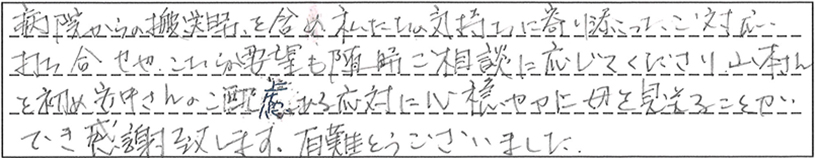 病院からの搬送時を含め私たちの気持ちに寄り添った、ご対応…
打ち合せや、こちらの要望も随時ご相談に応じてくださり、山村さん
を初め安中さんのご配慮ある応対に心穏やかに母を見送ることが
でき感謝致します。有難とうございました。